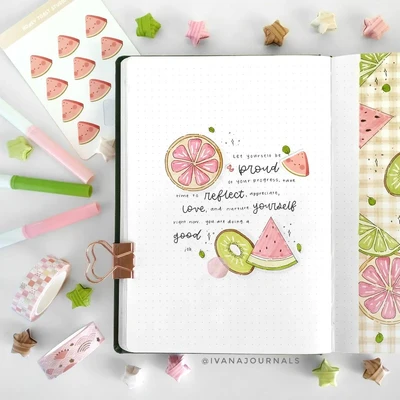 LET YOURSELF BE
proud
OF YOUR PROGRESS, TAKE
TIME TO reflect, APPRECIATE,
LOVE, AND NURTURE yourself
RIGHT NOW. YOU ARE DOING A
good
JOB.
@IVANAJOURNALS